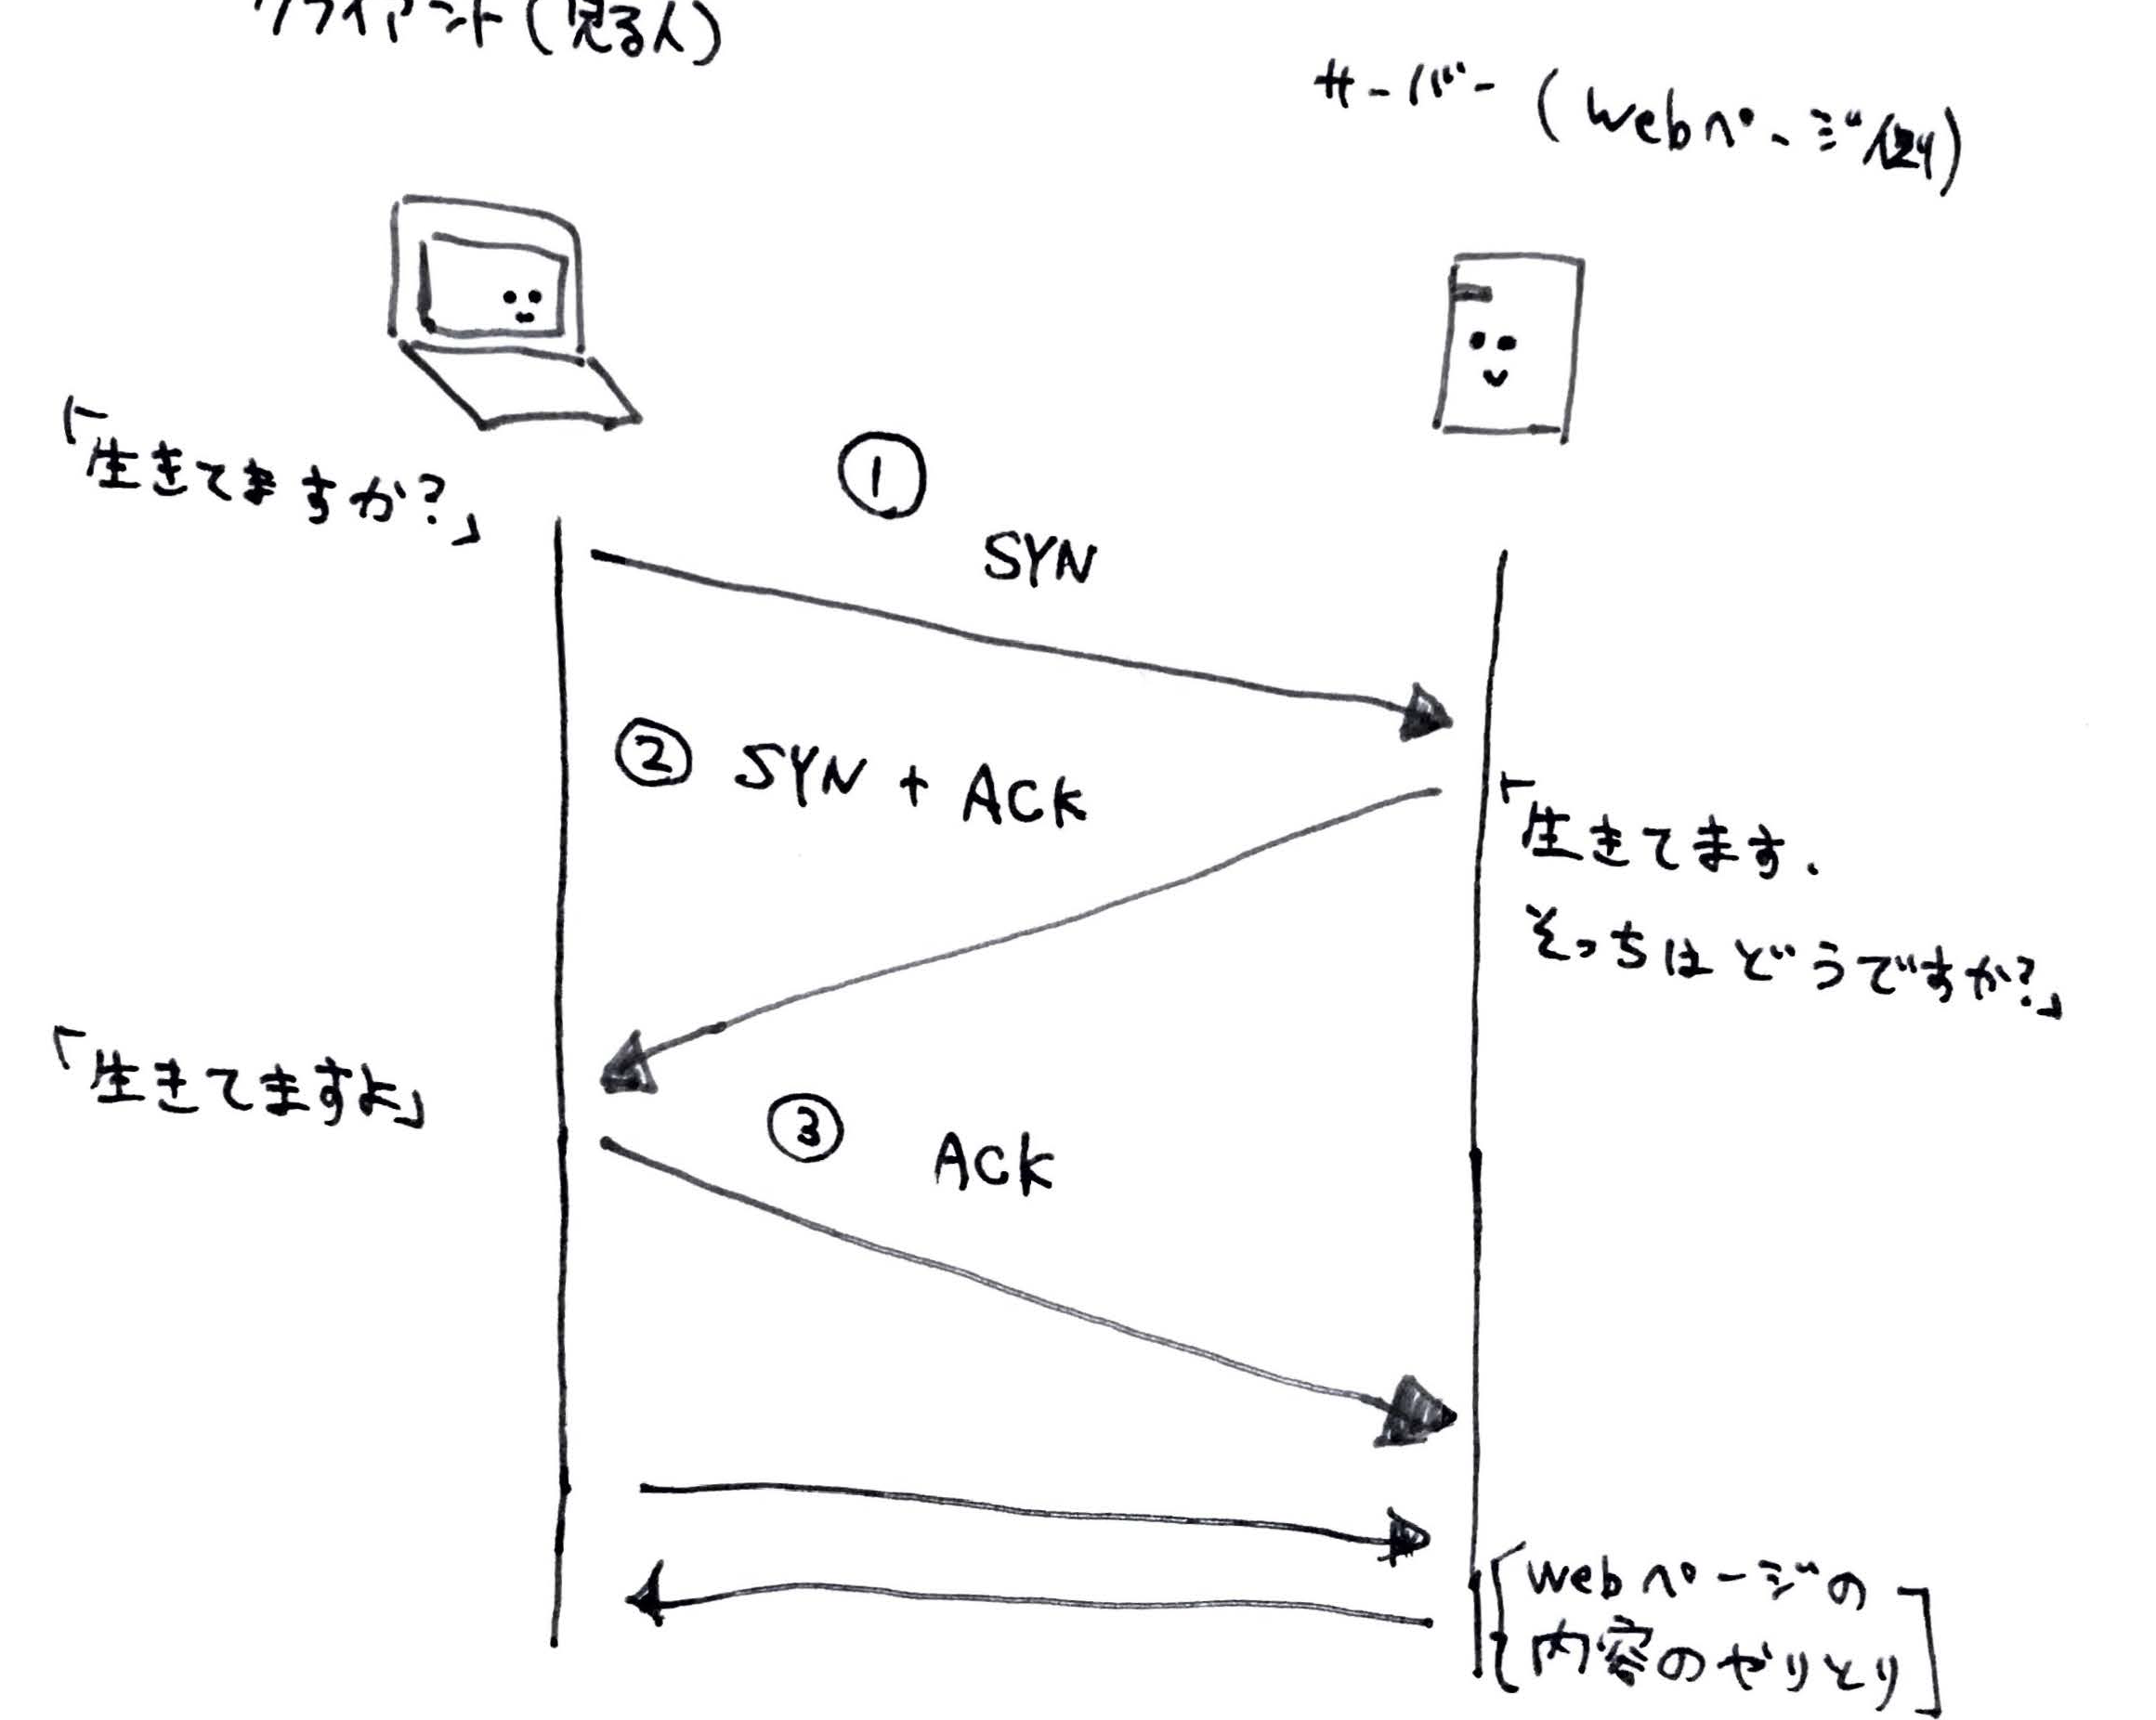 クライアント(見る人)
サーバー(webページ側)
「生きてますか?」
①
SYN
② SYN + ACK
「生きてます.
そっちはどうですか?」
「生きてますよ」
③
ACK
[webページの
内容のやりとり]